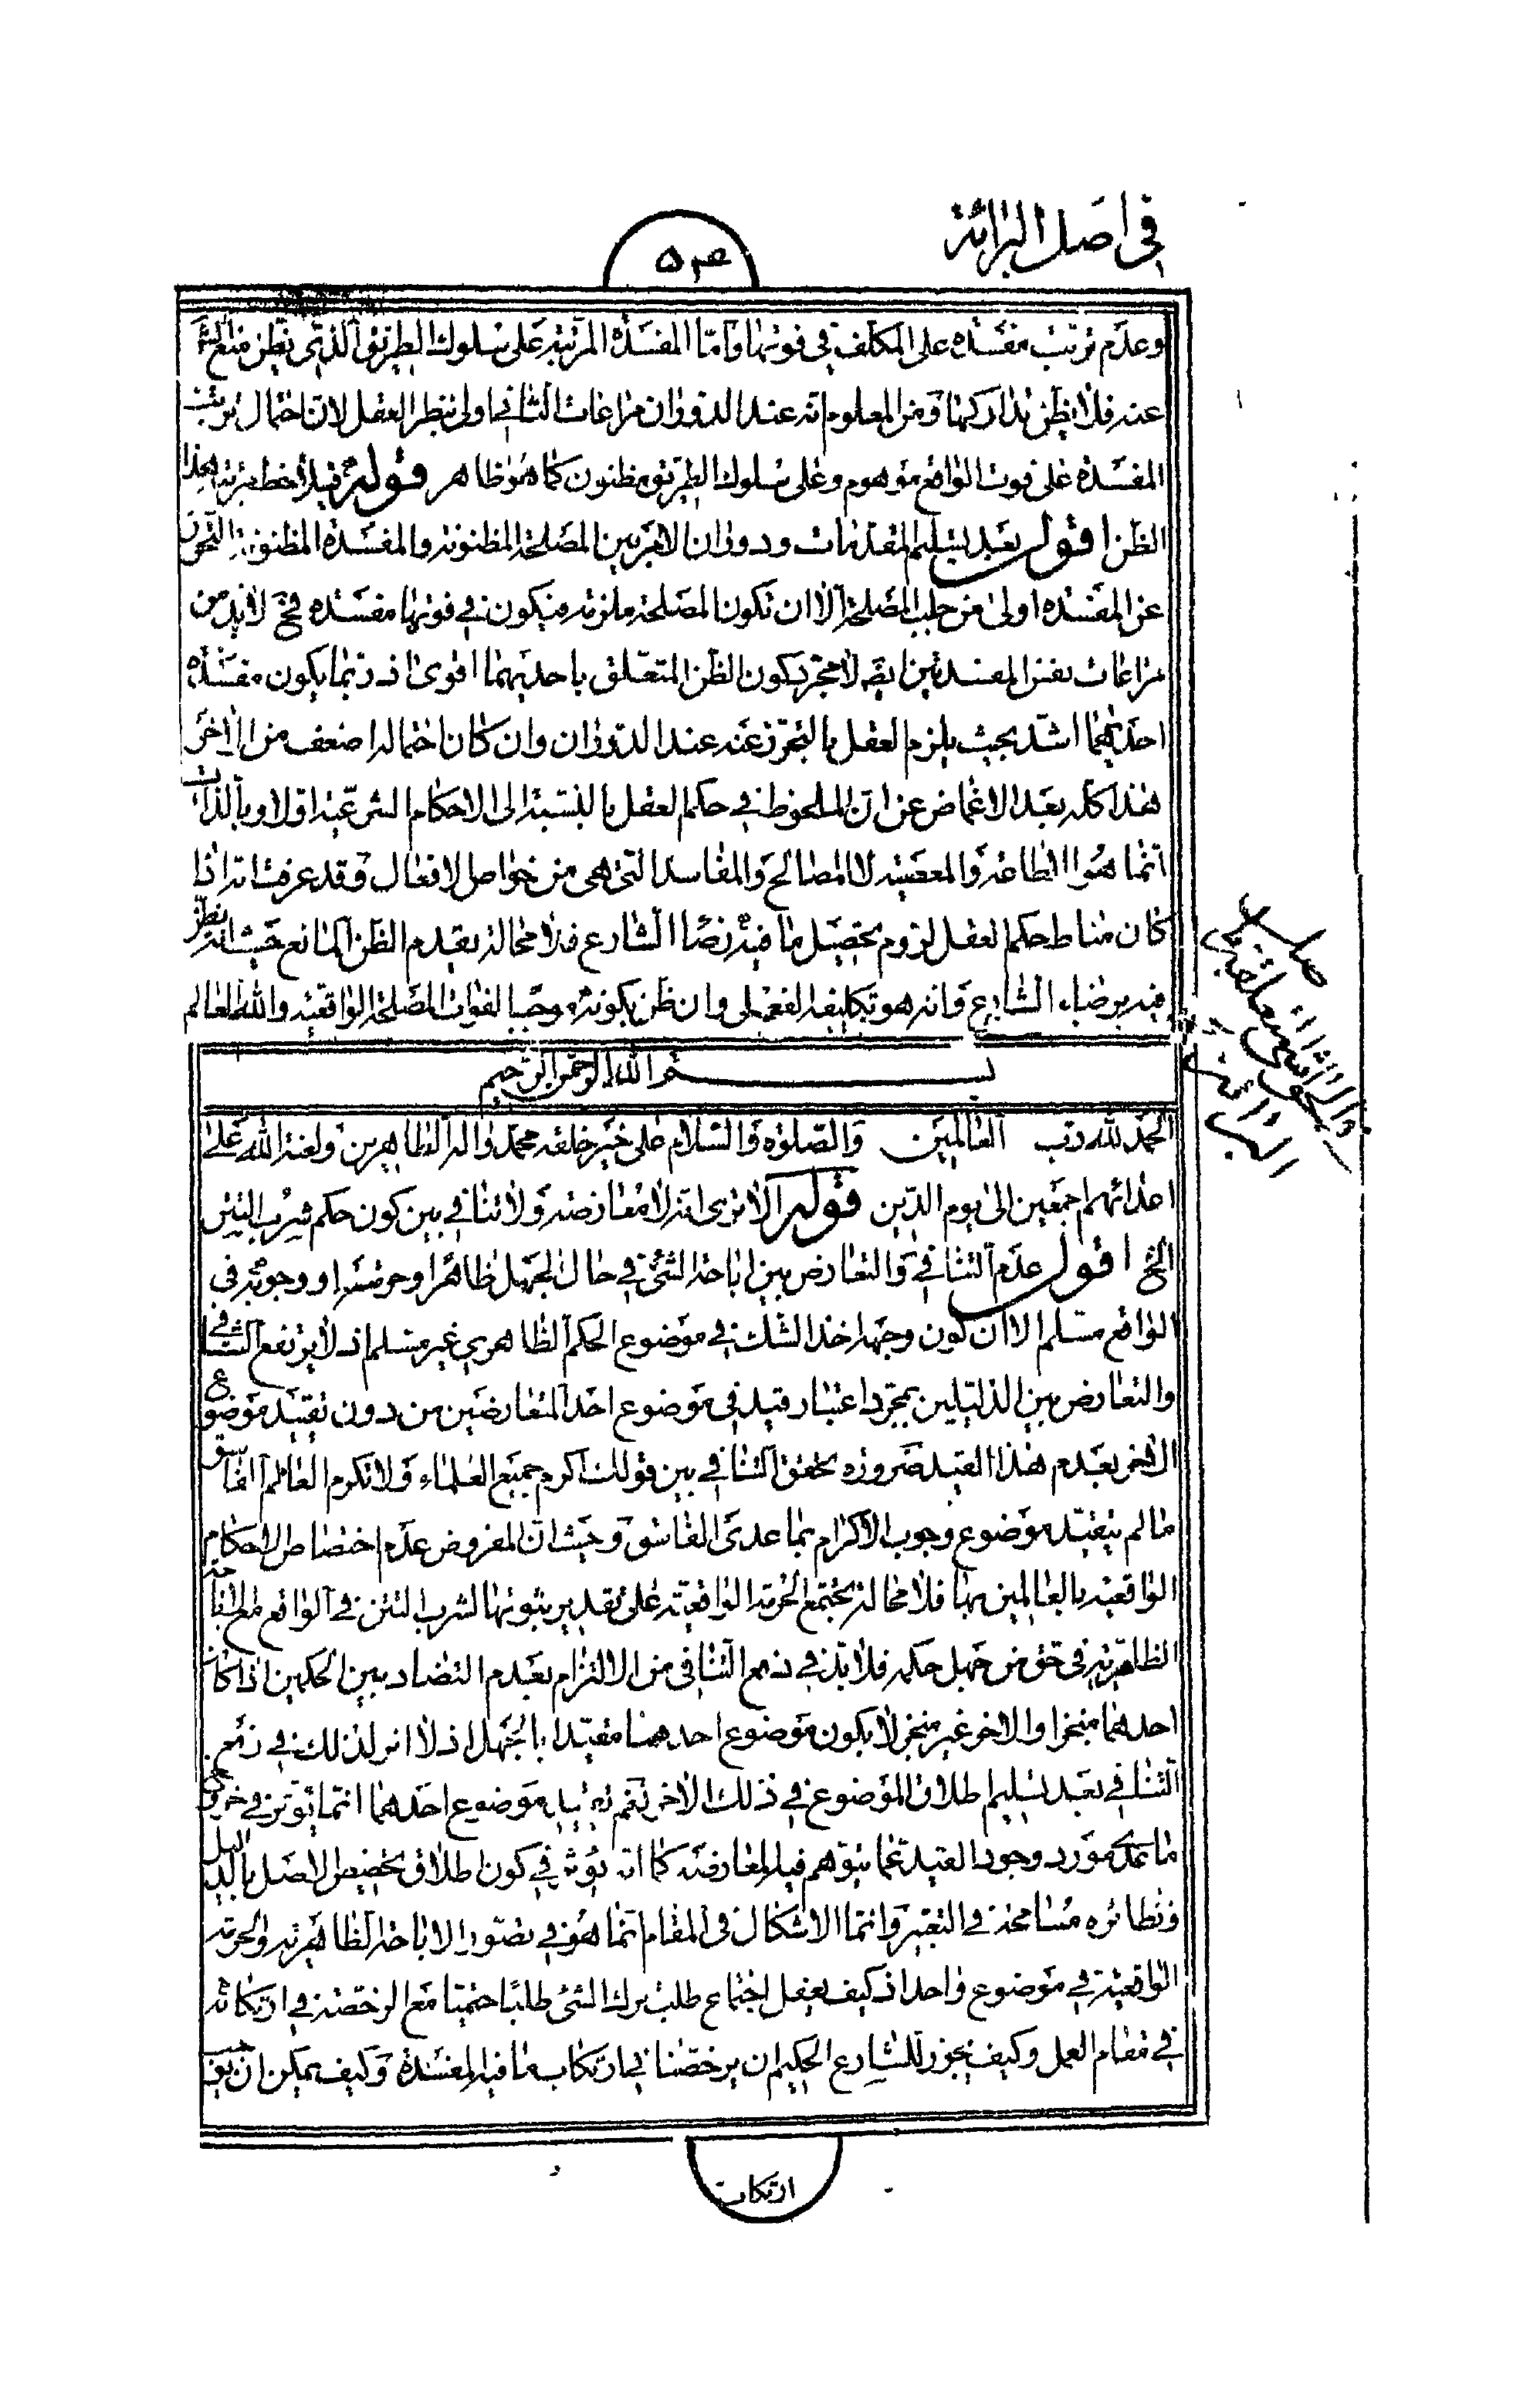 في اصل البرائة
وعدم ترتب مفسدة على المكلف في فوتها وامّا المفسدة المرتبة على سلوك الطريق الذى يظن منع الش
عنه فلا يظن بتداركها ومن المعلوم انه عند الدوران مراعات الثانى اولى بنظر العقل لان احتمال ترتب
المفسدة على فوت الواقع موهوم وعلى سلوك الطريق مظنون كما هو ظاهر قوله قيد اخطئريته بهذا
الظن اقول بعد تسليم المقدمات ودوران الامر بين المصلحة المظنونة والمفسدة المظنونة التحرز
عن المفسدة اولى من جلب المصلحة الا ان تكون المصلحة ملزمة فيكون في فوتها مفسدة فح لا بد من
مراعات نفس المفسدتين ايض لا مجرد كون الظن المتعلق باحديهما اقوى اذ ربما يكون مفسدة
احديهما اشد بحيث يلزم العقل بالتحرز عنه عند الدوران وان كان احتماله اضعف من الاخر
هذا كله بعد الاغماض عن ان الملحوظ في حكم العقل بالنسبة الى الاحكام الشرعية اولا وبالذات
انما هو الطاعة والمعصية لا المصالح والمفاسد التى هى من خواص الافعال وقد عرفت انه اذا
كان مناط حكم العقل لزوم تحصيل ما فيه رضا الشارع فلا محالة يقدم الظن المانع حيث انه يظن
فيه برضاء الشارع وانه هو تكليفه الفعلى وان ظن بكونه موجبا لفوات المصلحة الواقعية والله العالم
بسم الله الرحمن الرحيم
الحمد لله رب العالمين والصلوة والسلام على خير خلقه محمد واله الطاهرين ولعنة الله على
اعدائهم اجمعين الى يوم الدين قوله الا ترى انه لا معارضة ولا تنافي بين كون حكم شرب التتن
الخ اقول عدم التنافي والتعارض بين اباحة الشئ في حال الجهل ظاهرا وحرمته او وجوبه في
الواقع مسلم الا ان كون وجهه اخذ الشك في موضوع الحكم الظاهري غير مسلم اذ لا يرتفع التنافي
والتعارض بين الدليلين بمجرد اعتبار قيد في موضوع احد المتعارضين من دون تقييد موضوع
الاخر بعدم هذا القيد ضرورة تحقق التنافي بين قولك اكرم جميع العلماء ولا تكرم العالم الفاسق
ما لم يتقيد موضوع وجوب الاكرام بما عدى الفاسق وحيث ان المفروض عدم اختصاص الاحكام
الواقعية بالعالمين بها فلا محالة يجتمع الحرمة الواقعية على تقدير ثبوتها لشرب التتن في الواقع مع الاباحة
الظاهرية في حق من جهل حكمه فلا بد في دفع التنافى من الالتزام بعدم التضاد بين الحكمين اذا كان
احدهما منجزا والاخر غير منجز لا بكون موضوع احدهما مقيدا بالجهل اذ لا اثر لذلك في رفع
التنافي بعد تسليم اطلاق الموضوع في ذلك الاخر نعم تقييد موضوع احدهما انما يؤثر في خروج
ما عدى مورد وجود القيد عما يتوهم فيه المعارضة كما انه يؤثر في كون اطلاق تخصيص الاصل بالدليل
ونظائره مسامحة في التعبير وانما الاشكال في المقام انما هو في تصور الاباحة الظاهرية والحرمة
الواقعية في موضوع واحد اذ كيف يعقل اجتماع طلب ترك الشئ طلبا حتميا مع الرخصة في ارتكابه
في مقام العمل وكيف يجوز للشارع الحكيم ان يرخصنا في ارتكاب ما فيه المفسدة وكيف يمكن ان يق
ارتكاب